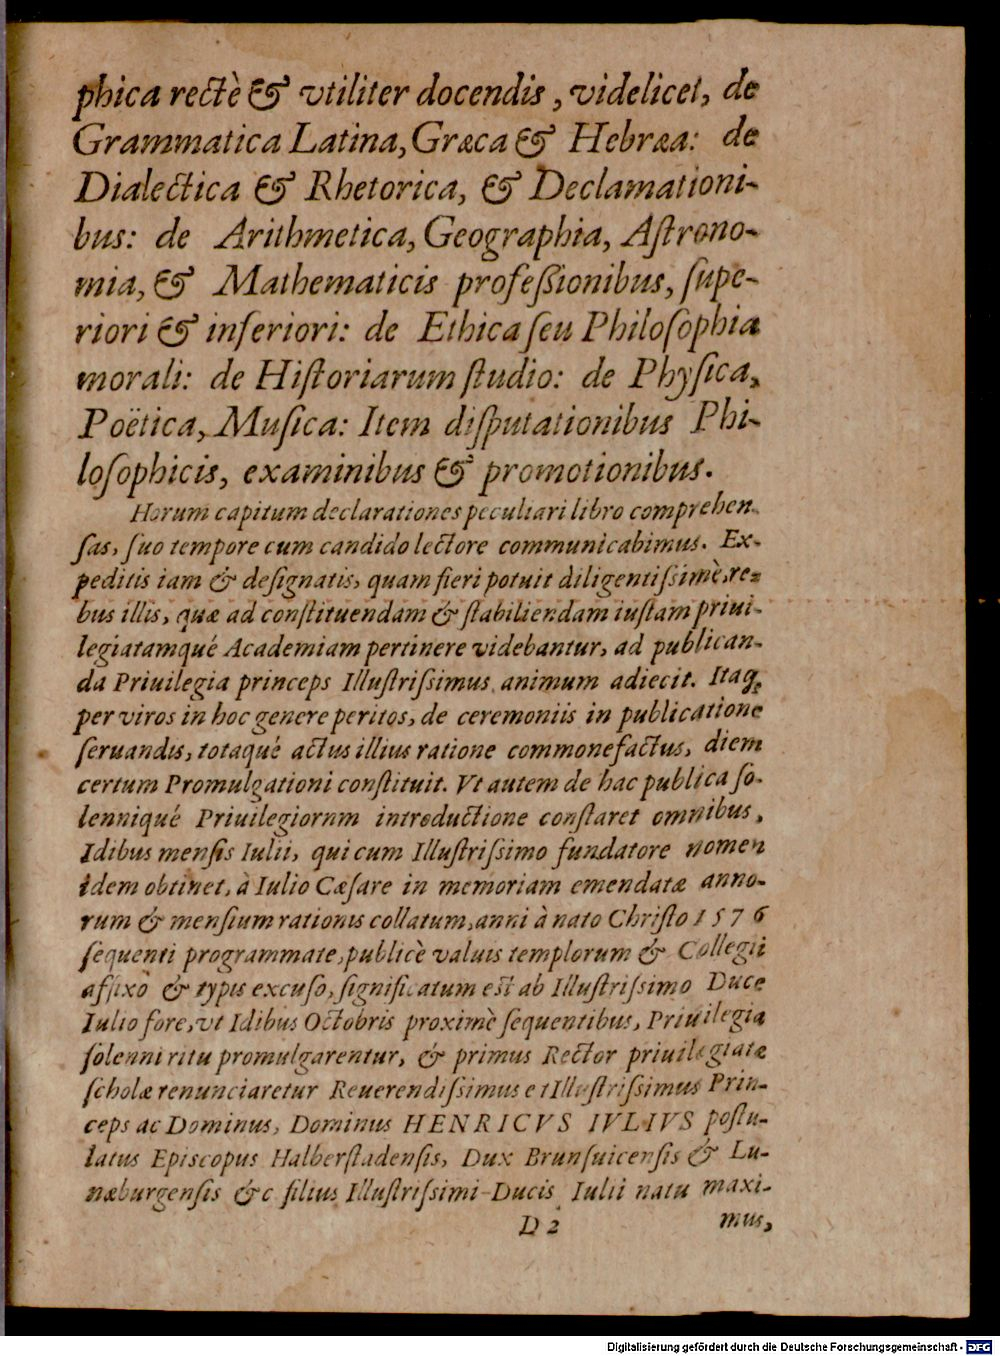 phica rectè & vtiliter docendis, videlicet, de
Grammatica Latina, Græca & Hebræa: de
Dialectica & Rhetorica, & Declamationi-
bus: de Arithmetica, Geographia, Aſtrono-
mia, & Mathematicis profeßionibus, ſupe-
riori & inferiori: de Ethica ſeu Philoſophia
morali: de Hiſtoriarum ſtudio: de Phyſica,
Poëtica, Muſica: Item diſputationibus Phi-
loſophicis, examinibus & promotionibus.
Horum capitum declarationes peculiari libro comprehen-
ſas, ſuo tempore cum candido lectore communicabimus. Ex-
peditis iam & deſignatis, quam fieri potuit diligentiſsimè, re-
bus illis, quæ ad conſtituendam & ſtabiliendam iuſtam priui-
legiatamqué Academiam pertinere videbantur, ad publican-
da Priuilegia princeps Illuſtriſsimus animum adiecit. Itaq;
per viros in hoc genere peritos, de ceremoniis in publicatione
ſeruandis, totaqué actus illius ratione commonefactus, diem
certum Promulgationi conſtituit. Vt autem de hac publica ſo-
lenniqué Priuilegiornm introductione conſtaret omnibus,
Idibus menſis Iulii, qui cum Illuſtriſsimo fundatore nomen
idem obtinet, à Iulio Cæſare in memoriam emendatæ anno-
rum & menſium rationis collatum, anni à nato Chriſto 1576
ſequenti programmate, publicè valuis templorum & Collegii
affixo & typis excuſo, ſignificatum est ab Illuſtriſsimo Duce
Iulio fore, vt Idibus Octobris proximè ſequentibus, Priuilegia
ſolenni ritu promulgarentur, & primus Rector priuilegiatæ
ſcholæ renunciaretur Reuerendiſsimus et Illuſtriſsimus Prin-
ceps ac Dominus, Dominus HENRICVS IVLIVS poſtu-
latus Epiſcopus Halberſtadenſis, Dux Brunſuicenſis & Lu-
næburgenſis &c filius Illuſtriſsimi Ducis Iulii natu maxi-
D 2 mus,
Digitalisierung gefördert durch die Deutsche Forschungsgemeinschaft - DFG